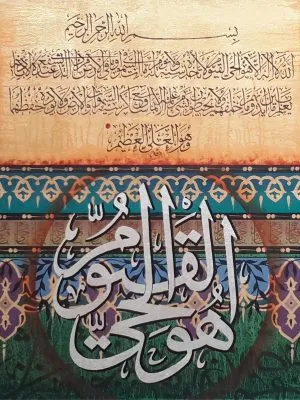 بسم الله الرحمن الرحيم
الله لا إله إلا هو الحي القيوم لا تأخذه سنة ولا نوم له ما في السموات وما في الأرض من ذا الذي يشفع عنده إلا بإذنه
يعلم ما بين أيديهم وما خلفهم ولا يحيطون بشيء من علمه إلا بما شاء وسع كرسيه السموات والأرض ولا يؤده حفظهما
وهو العلي العظيم
هو الحي القيوم